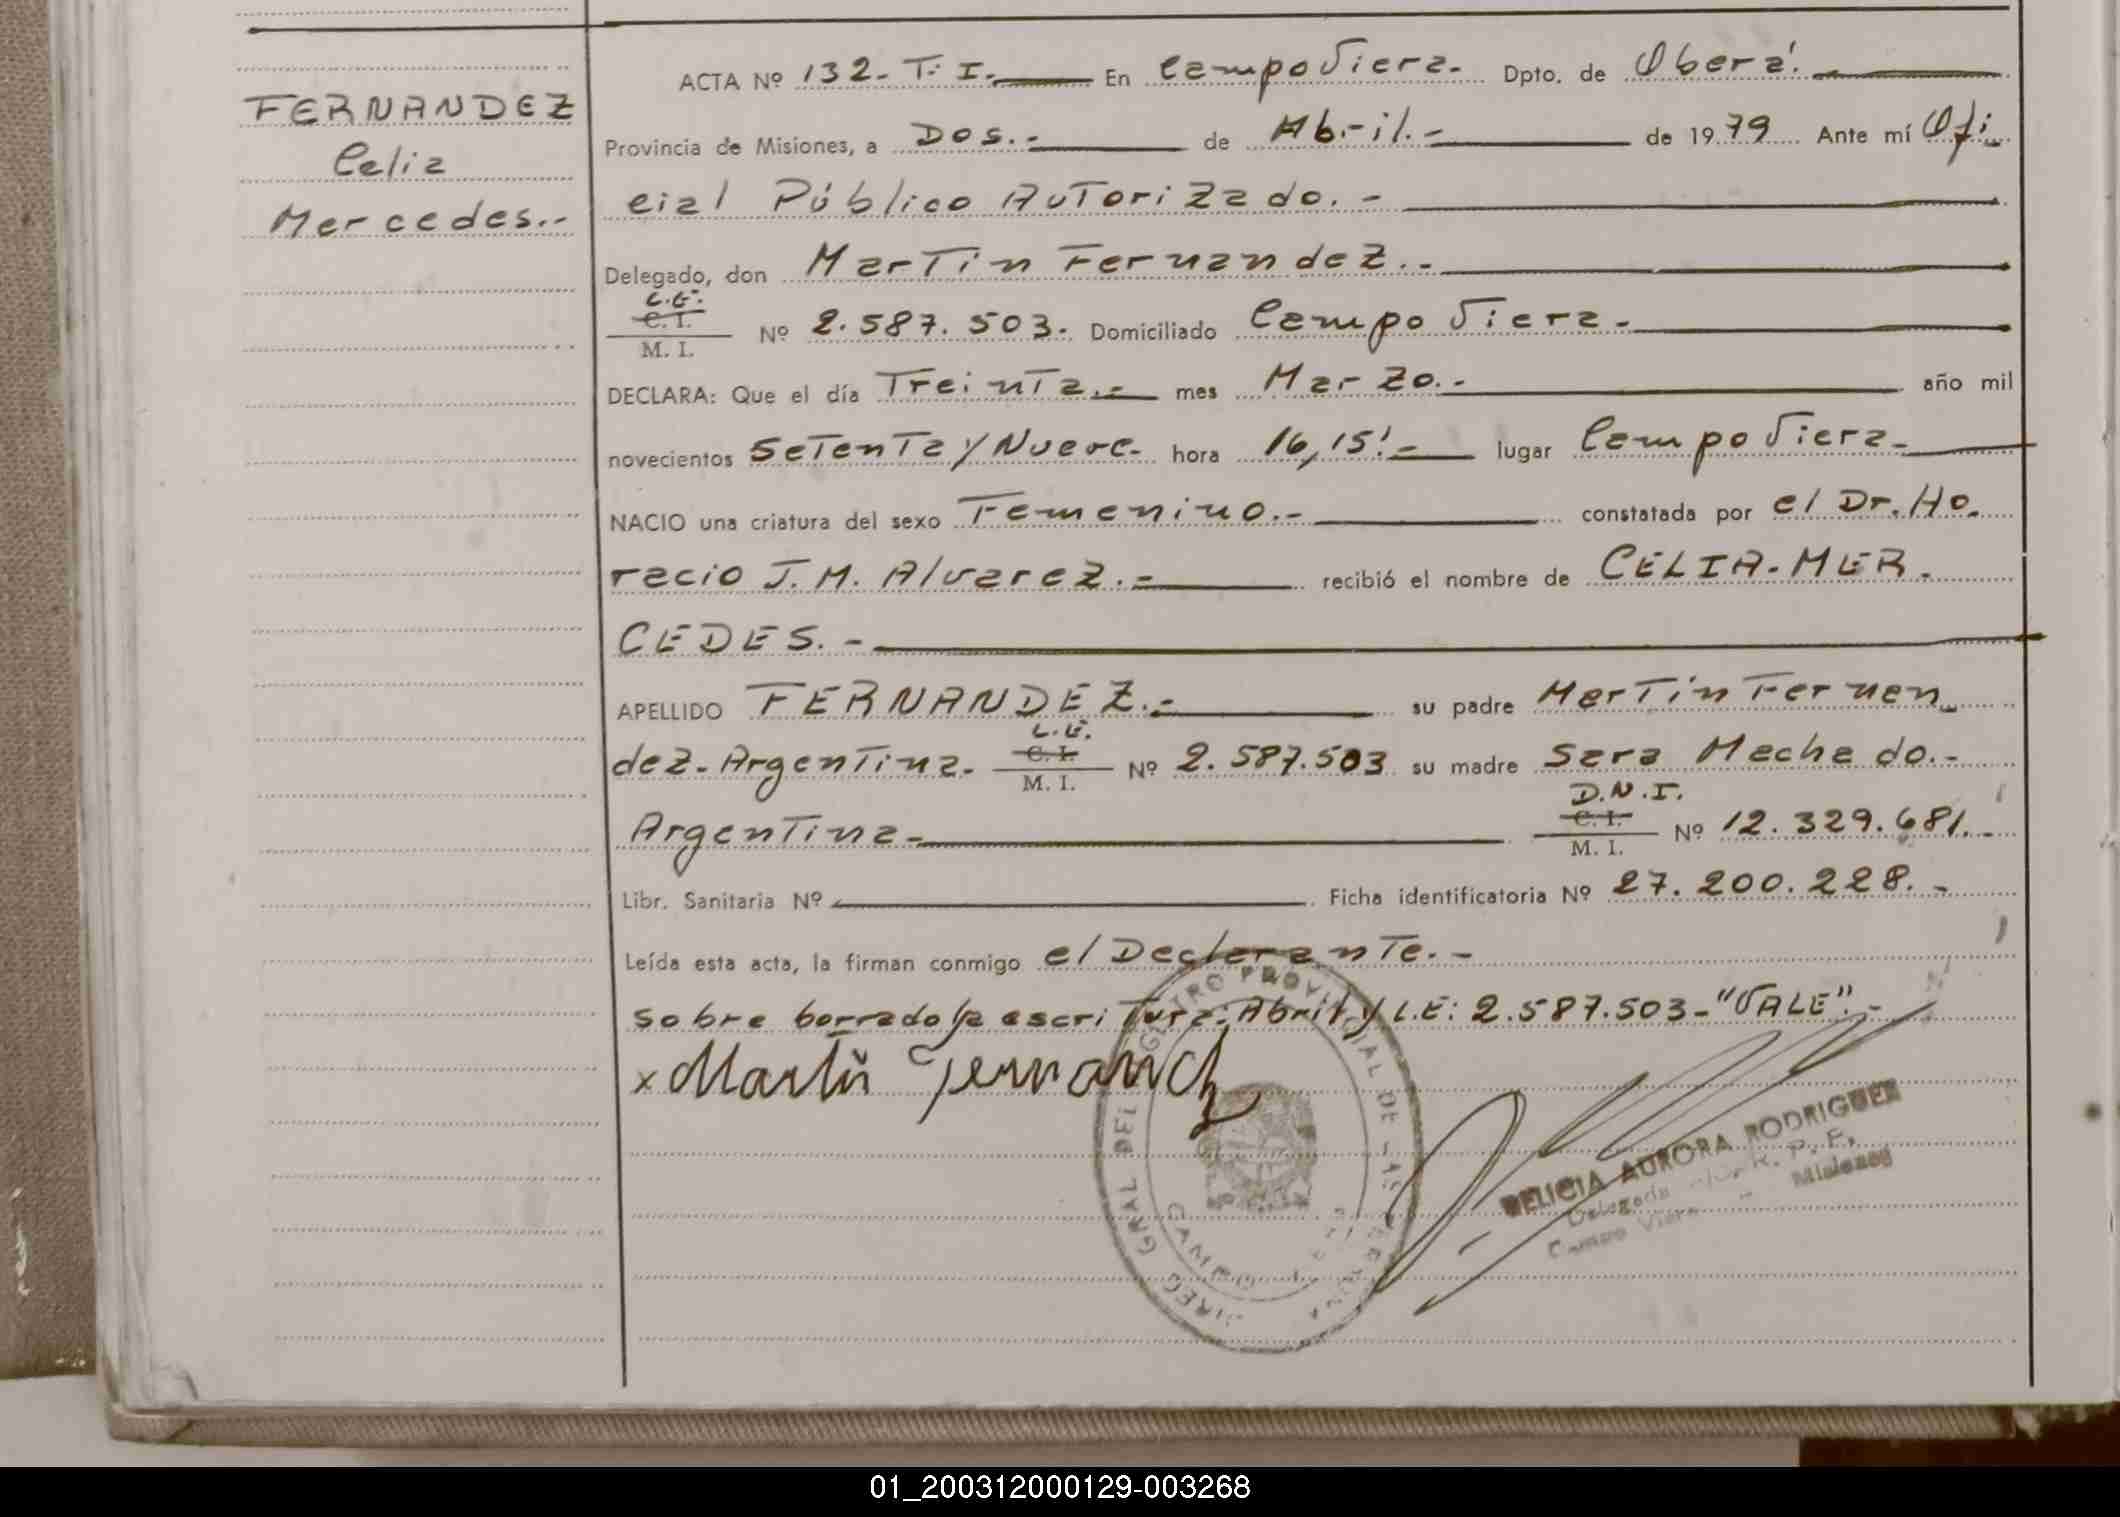 FERNANDEZ
Celia
Mercedes.-
ACTA Nº 132- T: I. En Campo Viera- Dpto. de Oberá.
Provincia de Misiones, a Dos.- de Abril.- de 1979 Ante mí Ofi
cial Público Autorizado.-
Delegado, don Martin Fernandez.-
L.E.
C. I.
M. I.
Nº 2.587.503. Domiciliado Campo Viera-
DECLARA: Que el día Treinta.- mes Marzo.- año mil
novecientos Setenta y Nueve- hora 16,15'- lugar Campo Viera-
NACIO una criatura del sexo Femenino.- constatada por el Dr. Ho-
racio J. M. Alvarez.- recibió el nombre de CELIA-MER-
CEDES.-
APELLIDO FERNANDEZ.- su padre Martin Fernan-
L.E.
dez-Argentina- C. I. Nº 2.587.503 su madre Sara Machado.-
M. I.
D.N.I.
Argentina- C. I. Nº 12.329.681.-
M. I.
Libr. Sanitaria Nº Ficha identificatoria Nº 27.200.228.-
Leída esta acta, la firman conmigo el Declarante.-
Sobre borrado/a escritura: Abril y L.E: 2.587.503-"VALE".-
x Martin Fernandez
DIREC. GRAL DEL REGISTRO PROVINCIAL DE LAS PERSONAS
CAMPO
DELICIA AURORA RODRIGUEZ
Delegada R. P. P.
Campo Viera - Misiones
01_200312000129-003268